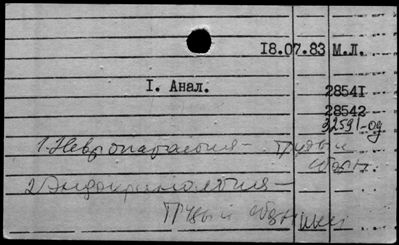 18.07.83 М.Л.
I. Анал.
28541
28542
32591-од
1. Невропатология - труды
2. Эндокринология -
труды